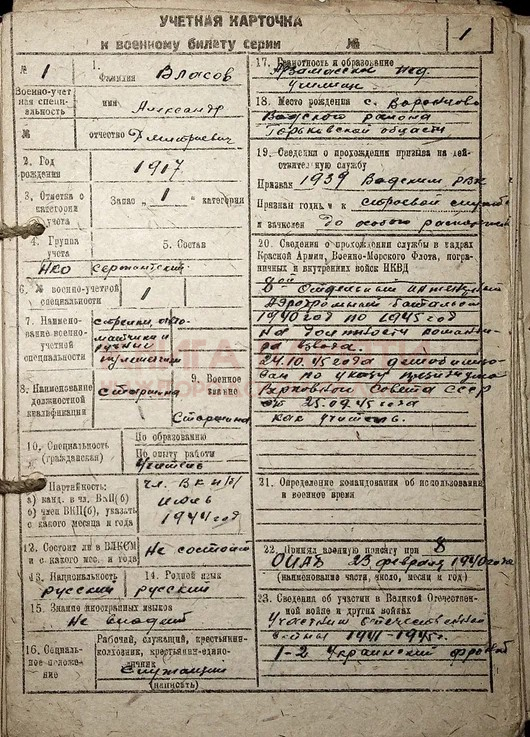 УЧЕТНАЯ КАРТОЧКА
к военному билету серии № 1
№ 1
Военно-учетная специальность
№
1. Фамилия Власов
имя Александр
отчество Дмитриевич
2. Год рождения 1917
3. Отметка о категории учета
Запас „1“ категории
4. Группа учета
НКО
5. Состав
сержантский
6. № военно-учетной специальности
1
7. Наименование военно-учетной специальности
стрелки, автоматчики и
ручные
пулеметчики
8. Наименование должностной квалификации
старшина
9. Военное звание
Старшина
10. Специальность (гражданская)
По образованию
По опыту работы
Учитель
11. Партийность:
а) канд. в чл. ВКП(б)
б) член ВКП(б), указать
с какого месяца и года
чл. ВКП(б)
1944 год
12. Состоит ли в ВЛКСМ
и с какого мес. и года
Не состоит
13. Национальность
русский
14. Родной язык
русский
15. Знание иностранных языков
Не владеет
16. Социальное положение
Рабочий, служащий, крестьянин-
колхозник, крестьянин-едино-
личник
Служащий
(вписать)
17. Грамотность и образование
Арзамасское пед.
училище
18. Место рождения с. Воронцово
Вадского района
Горьковской области
19. Сведения о прохождении призыва на действительную службу
Призван 1939 Вадским РВК
Признан годным к строевой службе
и зачислен до особого распоряжения
20. Сведения о прохождении службы в кадрах
Красной Армии, Военно-Морского Флота, пограничных и внутренних войск НКВД
8 Отдельный инженерный
Аэродромный батальон
1940 год по 1945 год
на должности командира взвода.
24.10.45 года демобилизован по указу президиума
Верховного Совета СССР
от 25.09.45 года
как учитель.
21. Определение командования об использовании
в военное время
22. Принял военную присягу при 8
ОИАБ 23 февраля 1940 года
(наименование части, число, месяц и год)
23. Сведения об участии в Великой Отечественной войне и других войнах
Участник отечественной
войны 1941-1945г.
1-2 Украинский фронт